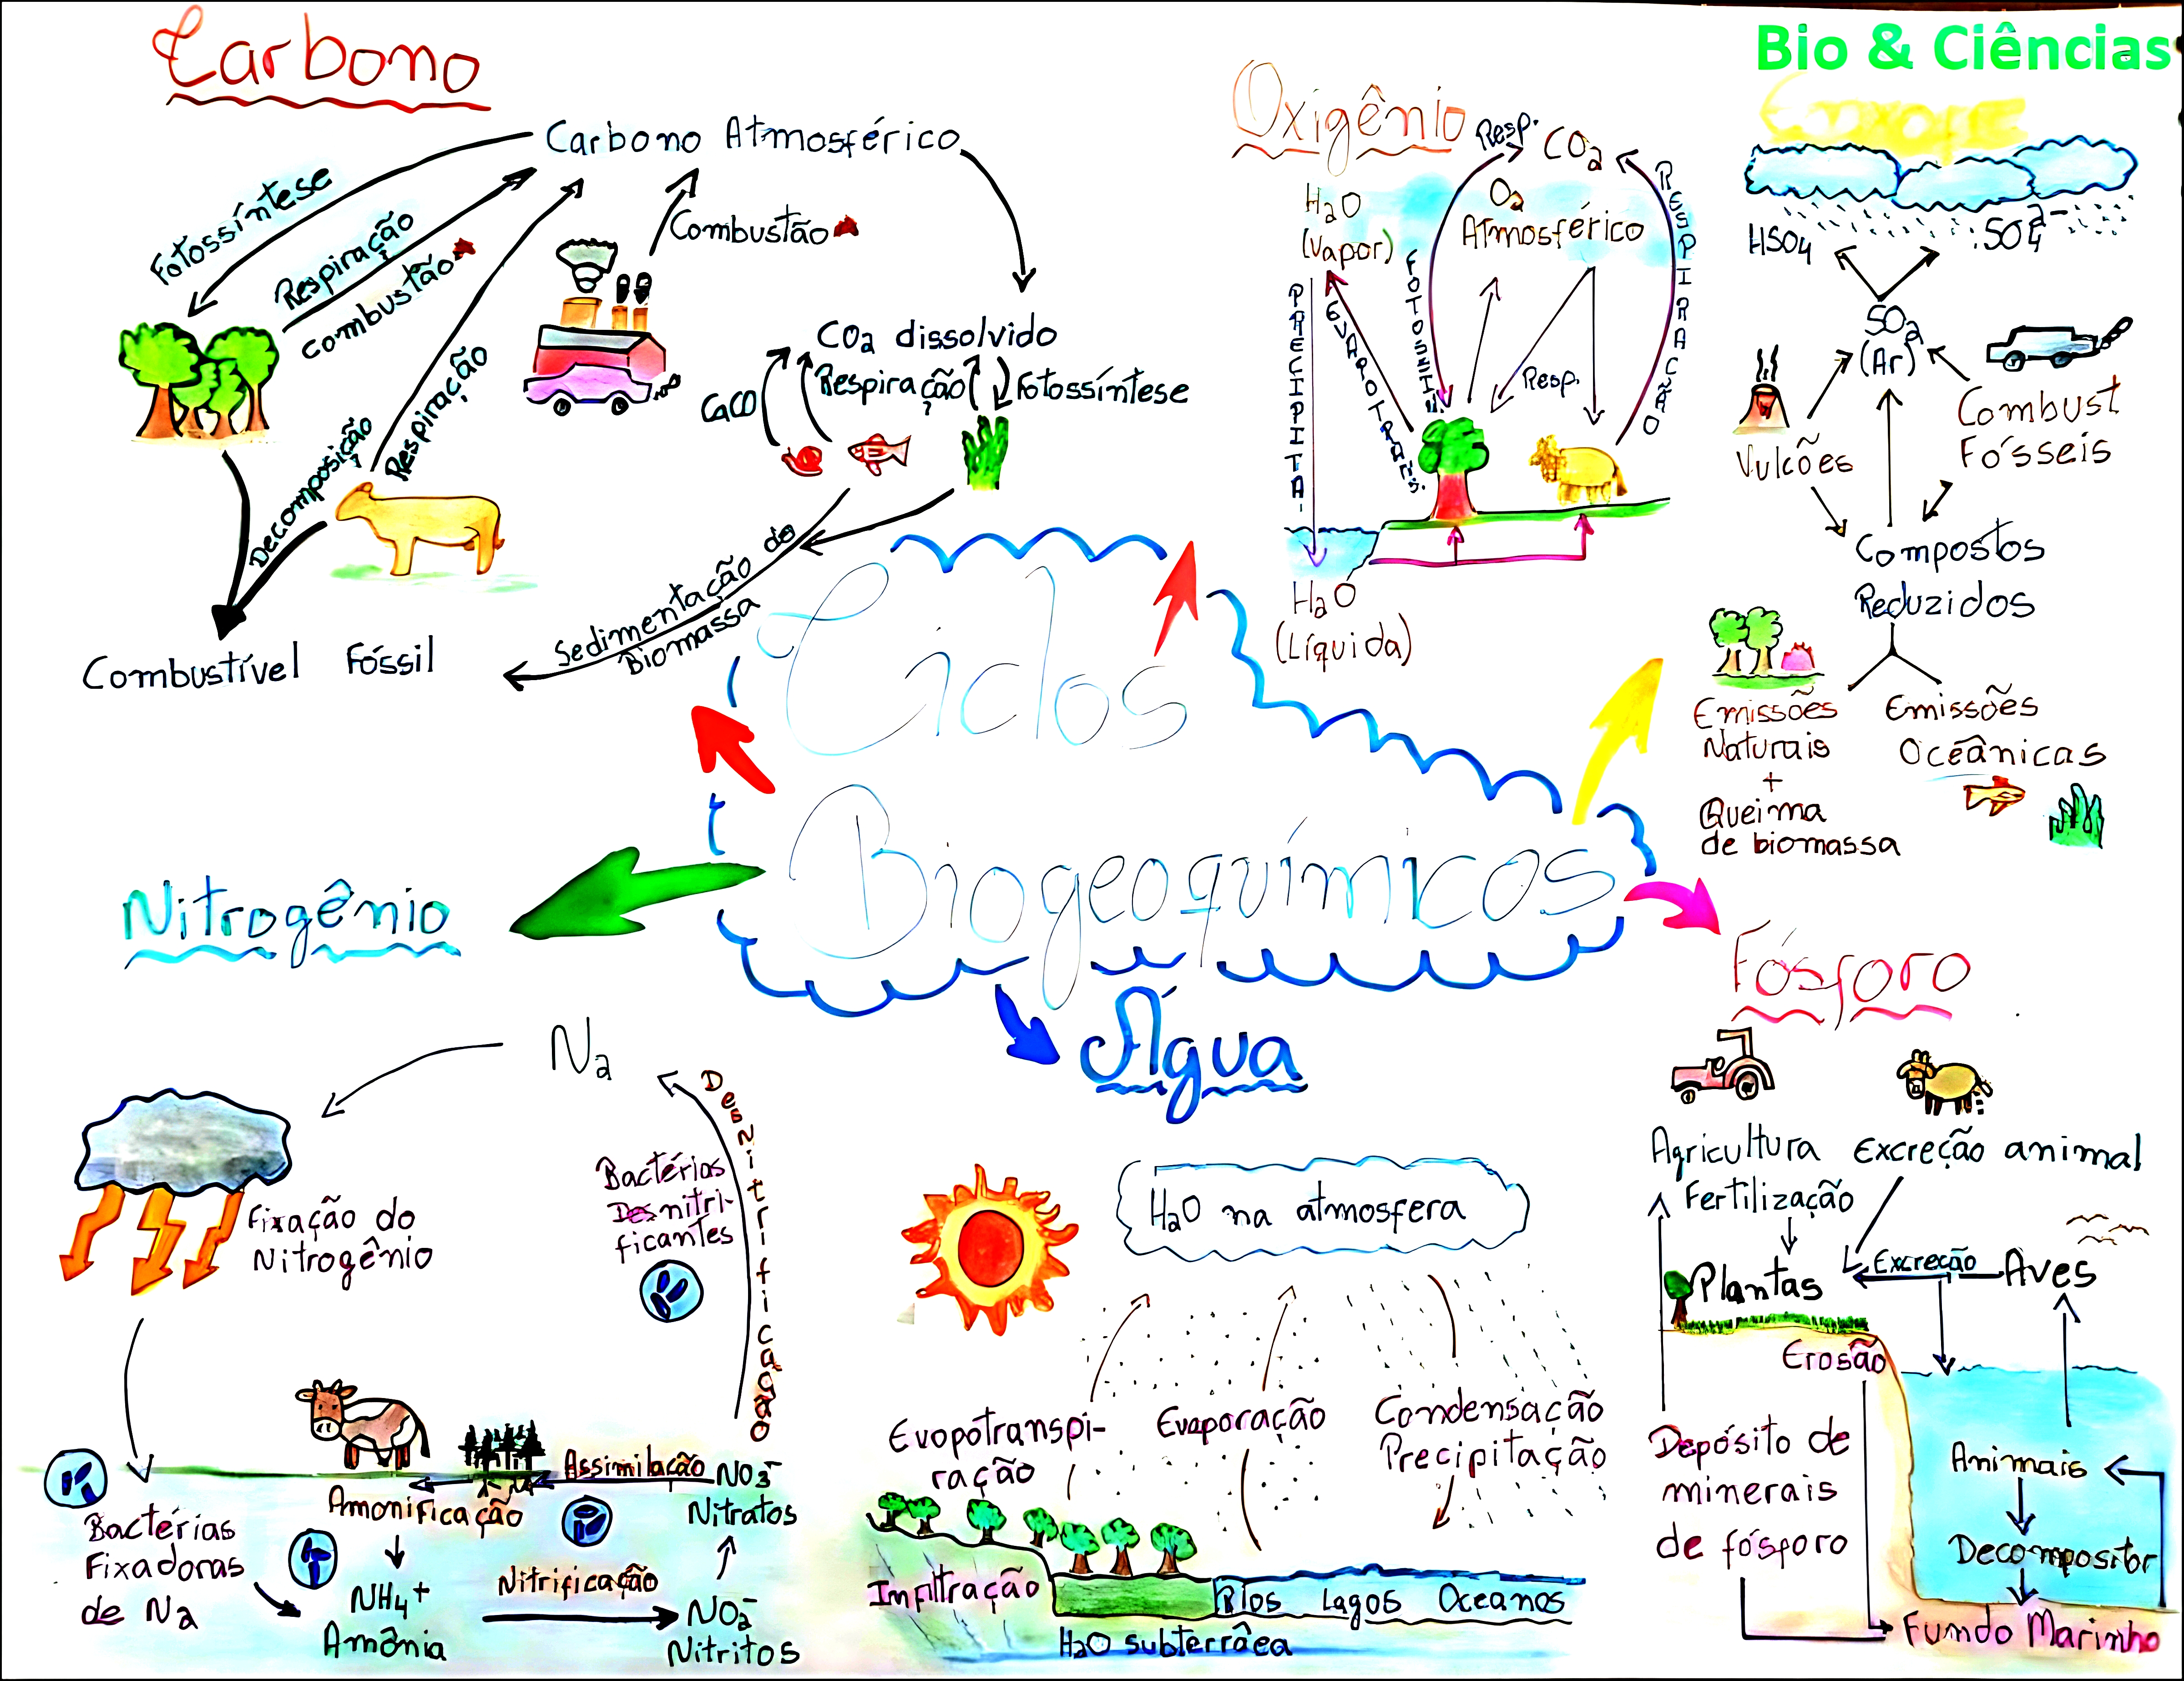 Carbono
Bio & Ciências
Enxofre
Oxigênio
Carbono Atmosférico
Fotossíntese
Respiração
combustão
Combustão
Respiração
Decomposição
CO2 dissolvido
CaCO
Respiração
Fotossíntese
Sedimentação de
Biomassa
Combustível Fóssil
Resp.
CO2
H2O
(Vapor)
O2
Atmosférico
RESPIRACÃO
FOTOSSÍN.
PRECIPITA-
EVAPOTRANS.
Resp.
H2O
(Líquida)
HSO4
SO4 2-
SO2
(Ar)
Vulcões
Combust
Fósseis
Compostos
Reduzidos
Emissões
Naturais
+
Queima
de biomassa
Emissões
Oceânicas
Ciclos
Biogeoquímicos
Nitrogênio
N2
Fixação do
Nitrogênio
Bactérias
Desnitri-
ficantes
Desnitrificação
Assimilação
NO3-
Nitratos
Amonificação
Bactérias
Fixadoras
de N2
NH4+
Amônia
Nitrificação
NO2-
Nitritos
Água
H2O na atmosfera
Evopotranspi-
ração
Evaporação
Condensação
Precipitação
Infiltração
Rios Lagos Oceanos
H2O subterrâea
Fósforo
Agricultura
Fertilização
Excreção animal
Plantas
Excreção
Aves
Erosão
Depósito de
minerais
de fósforo
Animais
Decompositor
Fundo Marinho